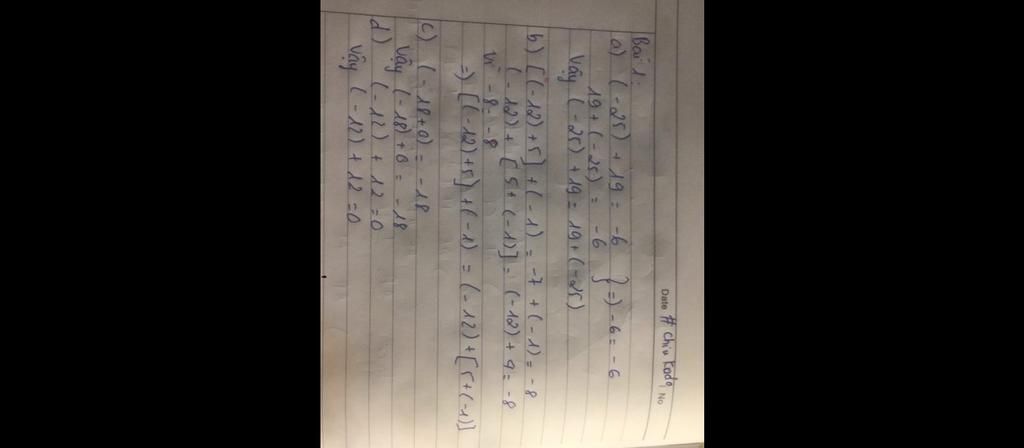 Date # Chiu Kada No
Bài 1:
a) (-25) + 19 = -6
19 + (-25) = -6 } =) -6 = -6
Vậy (-25) + 19 = 19 + (-25)
b) [(-12) + 5] + (-1) = -7 + (-1) = -8
(-12) + [5 + (-1)] = (-12) + 4 = -8
Vì -8 = -8
=) [(-12) + 5] + (-1) = (-12) + [5 + (-1)]
c) (-18 + 0) = -18
Vậy (-18) + 0 = -18
d) (-12) + 12 = 0
Vậy (-12) + 12 = 0